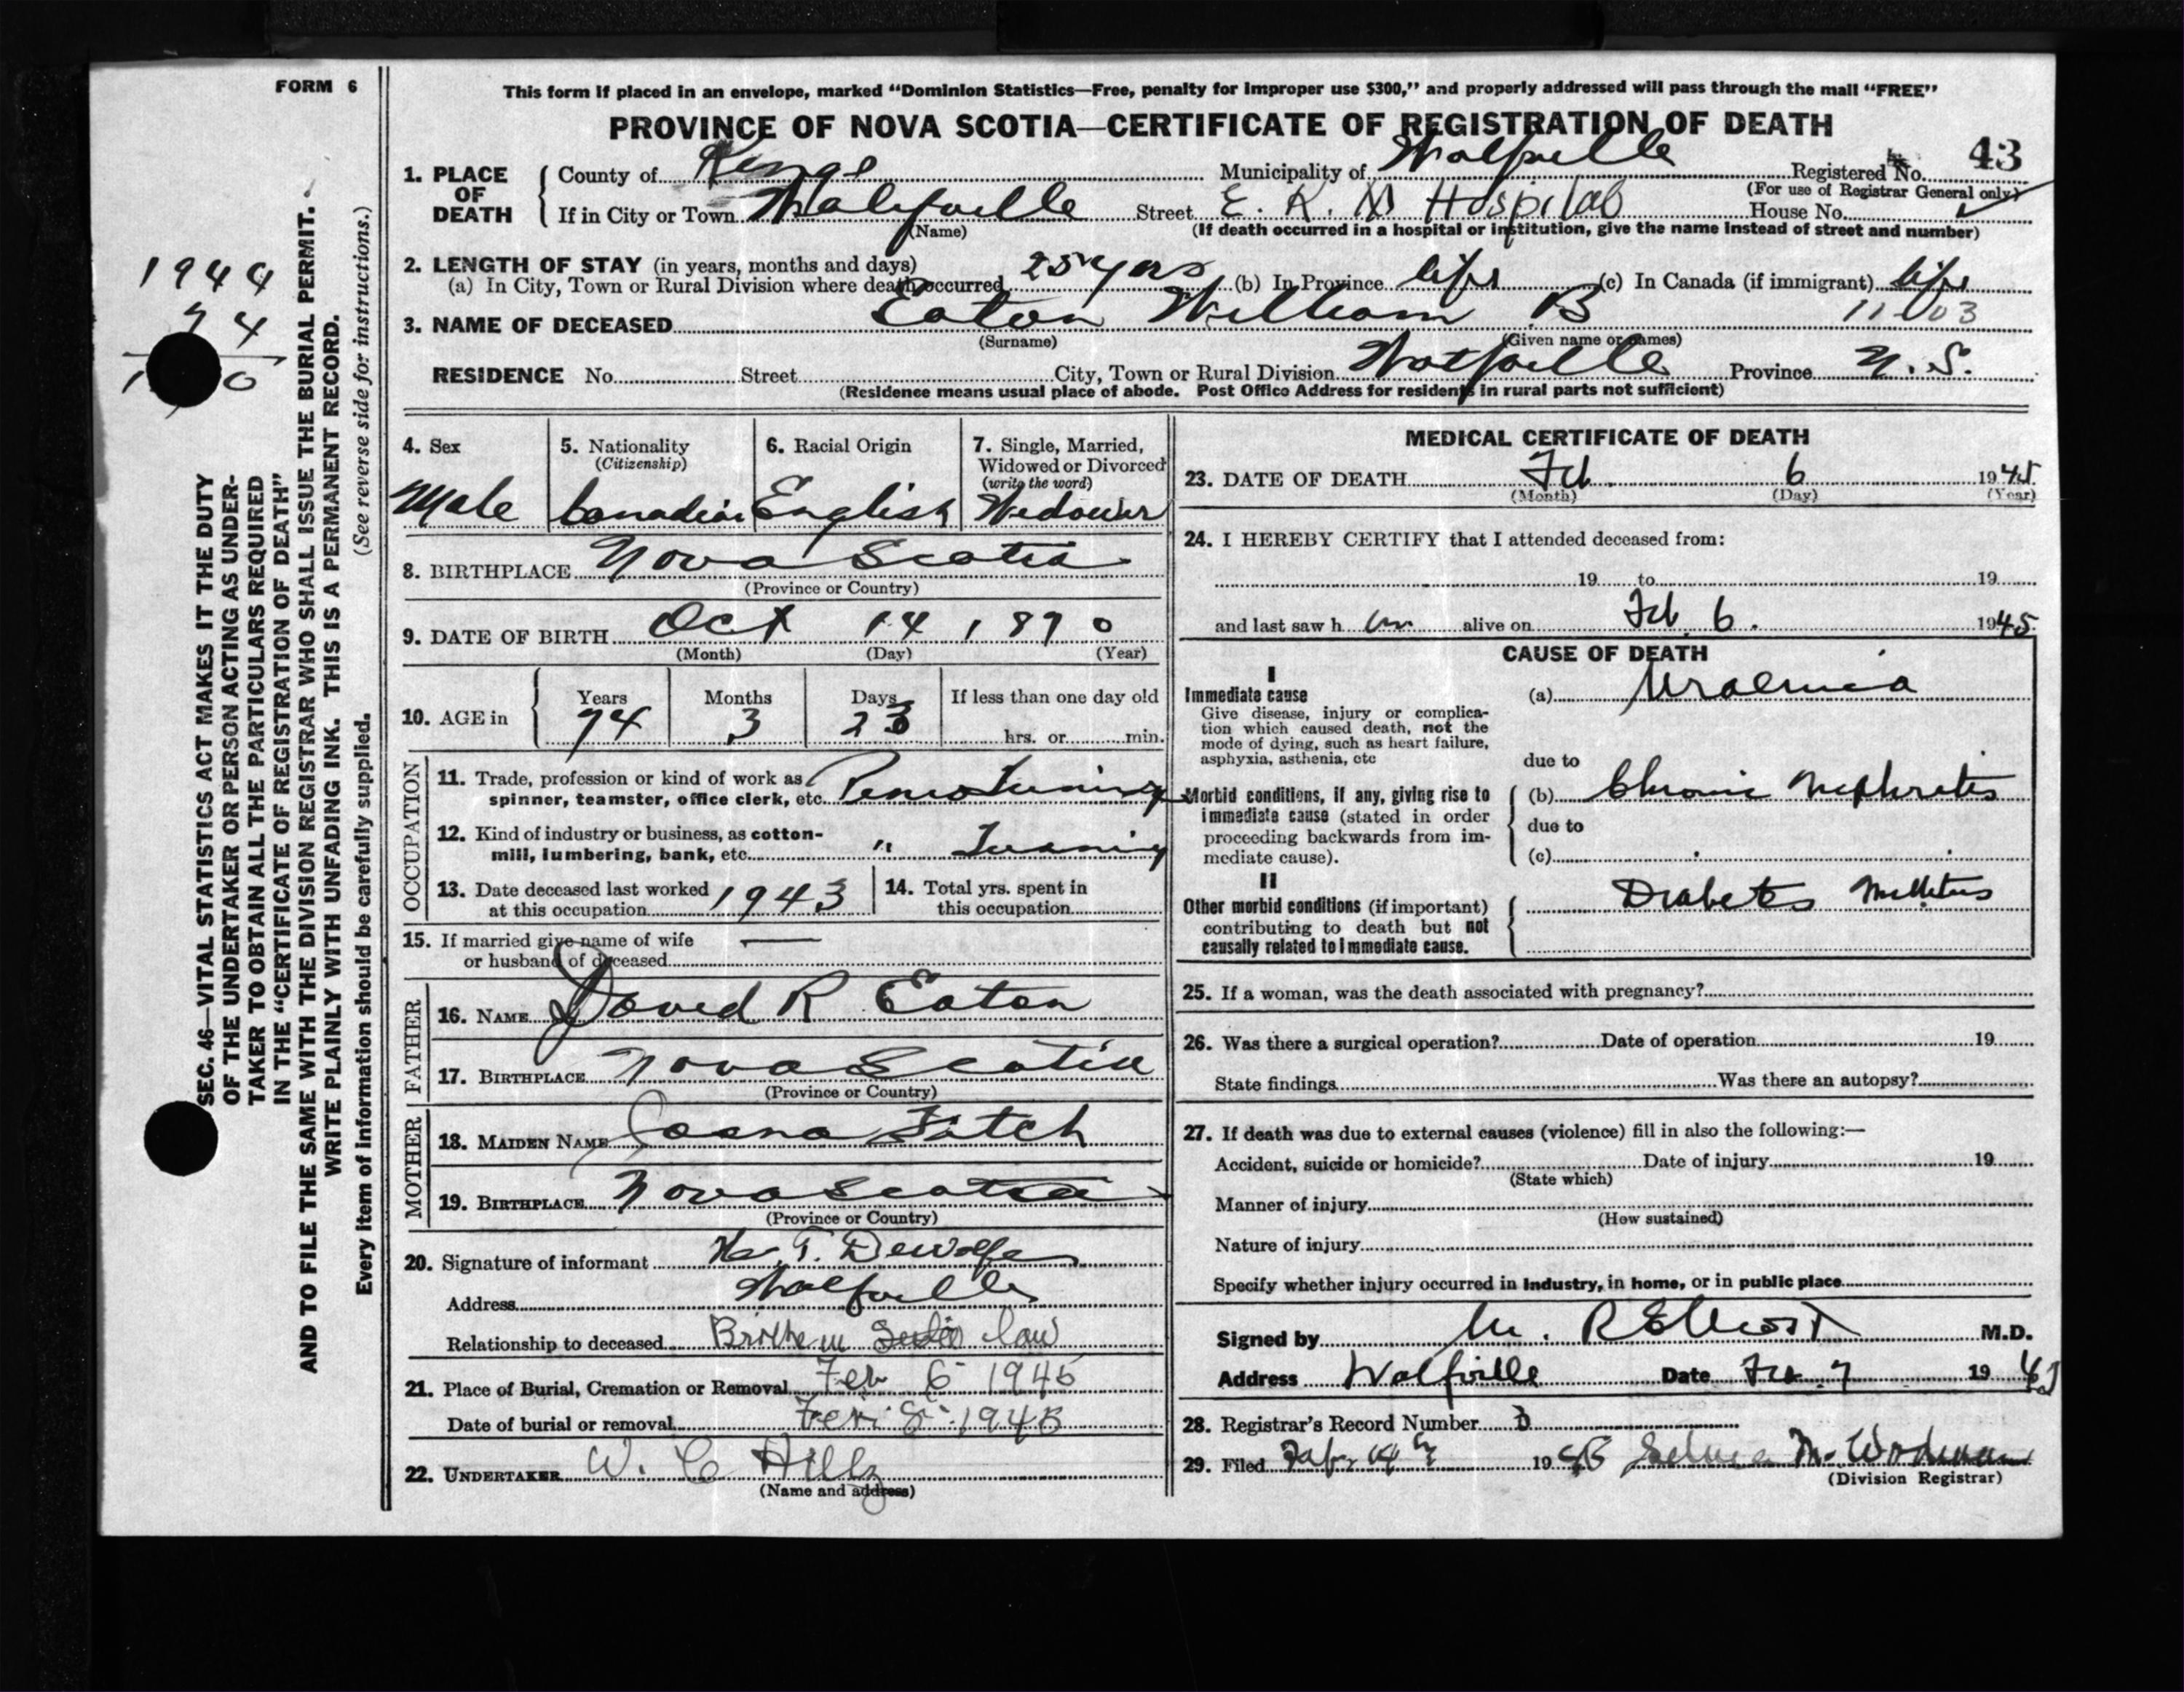 FORM 6
This form if placed in an envelope, marked "Dominion Statistics—Free, penalty for improper use $300," and properly addressed will pass through the mail "FREE"
PROVINCE OF NOVA SCOTIA—CERTIFICATE OF REGISTRATION OF DEATH
43
1. PLACE OF DEATH
County of Kings Municipality of Wolfville Registered No.
(For use of Registrar General only)
If in City or Town Wolfville Street E. K. M Hospital House No.
(Name) (If death occurred in a hospital or institution, give the name instead of street and number)
2. LENGTH OF STAY (in years, months and days)
(a) In City, Town or Rural Division where death occurred 25 yrs (b) In Province life (c) In Canada (if immigrant) life
3. NAME OF DECEASED Eaton William B 1103
(Surname) (Given name or names)
RESIDENCE No. Street City, Town or Rural Division Wolfville Province N. S.
(Residence means usual place of abode. Post Office Address for residents in rural parts not sufficient)
4. Sex
Male
5. Nationality
(Citizenship)
Canadian
6. Racial Origin
English
7. Single, Married,
Widowed or Divorced
(write the word)
Widower
8. BIRTHPLACE Nova Scotia
(Province or Country)
9. DATE OF BIRTH Oct 14 1870
(Month) (Day) (Year)
10. AGE in
Years Months Days If less than one day old
74 3 23 hrs. or min.
OCCUPATION
11. Trade, profession or kind of work as
spinner, teamster, office clerk, etc. Piano Tuning
12. Kind of industry or business, as cotton-
mill, lumbering, bank, etc. " Tuning
13. Date deceased last worked
at this occupation 1943
14. Total yrs. spent in
this occupation
15. If married give name of wife —
or husband of deceased
FATHER
16. NAME David R Eaton
17. BIRTHPLACE Nova Scotia
(Province or Country)
MOTHER
18. MAIDEN NAME Joana Fitch
19. BIRTHPLACE Nova Scotia
(Province or Country)
20. Signature of informant T. DeWolfe
Address Wolfville
Relationship to deceased Brother in law
21. Place of Burial, Cremation or Removal Feb 6 1945
Date of burial or removal Feb 8 1945
22. UNDERTAKER W. C
(Name and address)
MEDICAL CERTIFICATE OF DEATH
23. DATE OF DEATH Feb. 6 1945
(Month) (Day) (Year)
24. I HEREBY CERTIFY that I attended deceased from:
19 to 19
and last saw h im alive on Feb 6. 1945
CAUSE OF DEATH
I
Immediate cause
Give disease, injury or complica-
tion which caused death, not the
mode of dying, such as heart failure,
asphyxia, asthenia, etc
(a) Uraemia
due to
Morbid conditions, if any, giving rise to
immediate cause (stated in order
proceeding backwards from im-
mediate cause).
(b) Chronic Nephritis
due to
(c)
II
Other morbid conditions (if important)
contributing to death but not
causally related to immediate cause.
Diabetes Mellitus
25. If a woman, was the death associated with pregnancy?
26. Was there a surgical operation? Date of operation 19
State findings Was there an autopsy?
27. If death was due to external causes (violence) fill in also the following:—
Accident, suicide or homicide? Date of injury 19
(State which)
Manner of injury
(How sustained)
Nature of injury
Specify whether injury occurred in Industry, in home, or in public place
Signed by M. R Elliott M.D.
Address Wolfville Date Feb. 7 1945
28. Registrar's Record Number 3
29. Filed Feb. 14th 1945 M. Woodman
(Division Registrar)
1944
74
SEC. 46—VITAL STATISTICS ACT MAKES IT THE DUTY
OF THE UNDERTAKER OR PERSON ACTING AS UNDER-
TAKER TO OBTAIN ALL THE PARTICULARS REQUIRED
IN THE "CERTIFICATE OF REGISTRATION OF DEATH"
AND TO FILE THE SAME WITH THE DIVISION REGISTRAR WHO SHALL ISSUE THE BURIAL PERMIT.
WRITE PLAINLY WITH UNFADING INK. THIS IS A PERMANENT RECORD.
Every item of information should be carefully supplied. (See reverse side for instructions.)